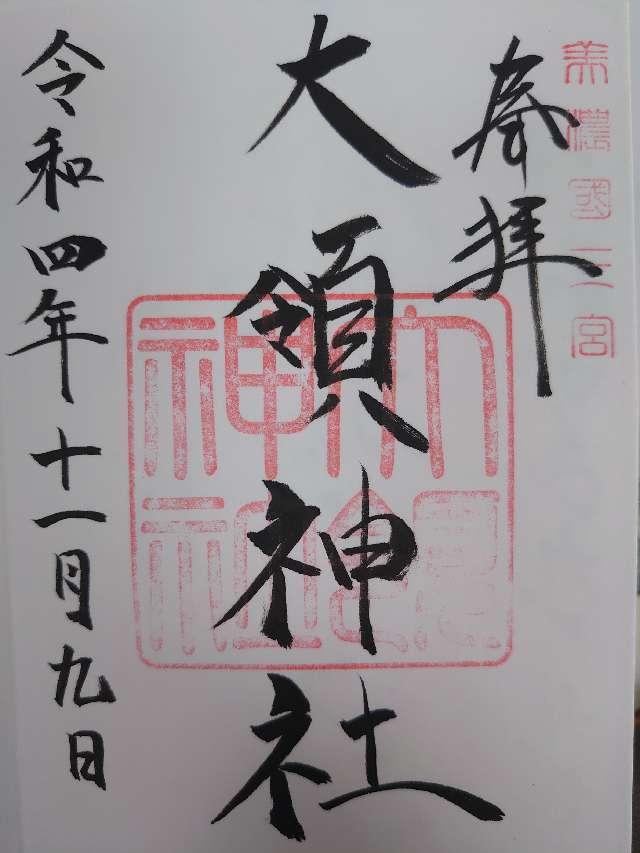 美濃國三宮
奉拝
大領神社
大領神社
令和四年十一月九日